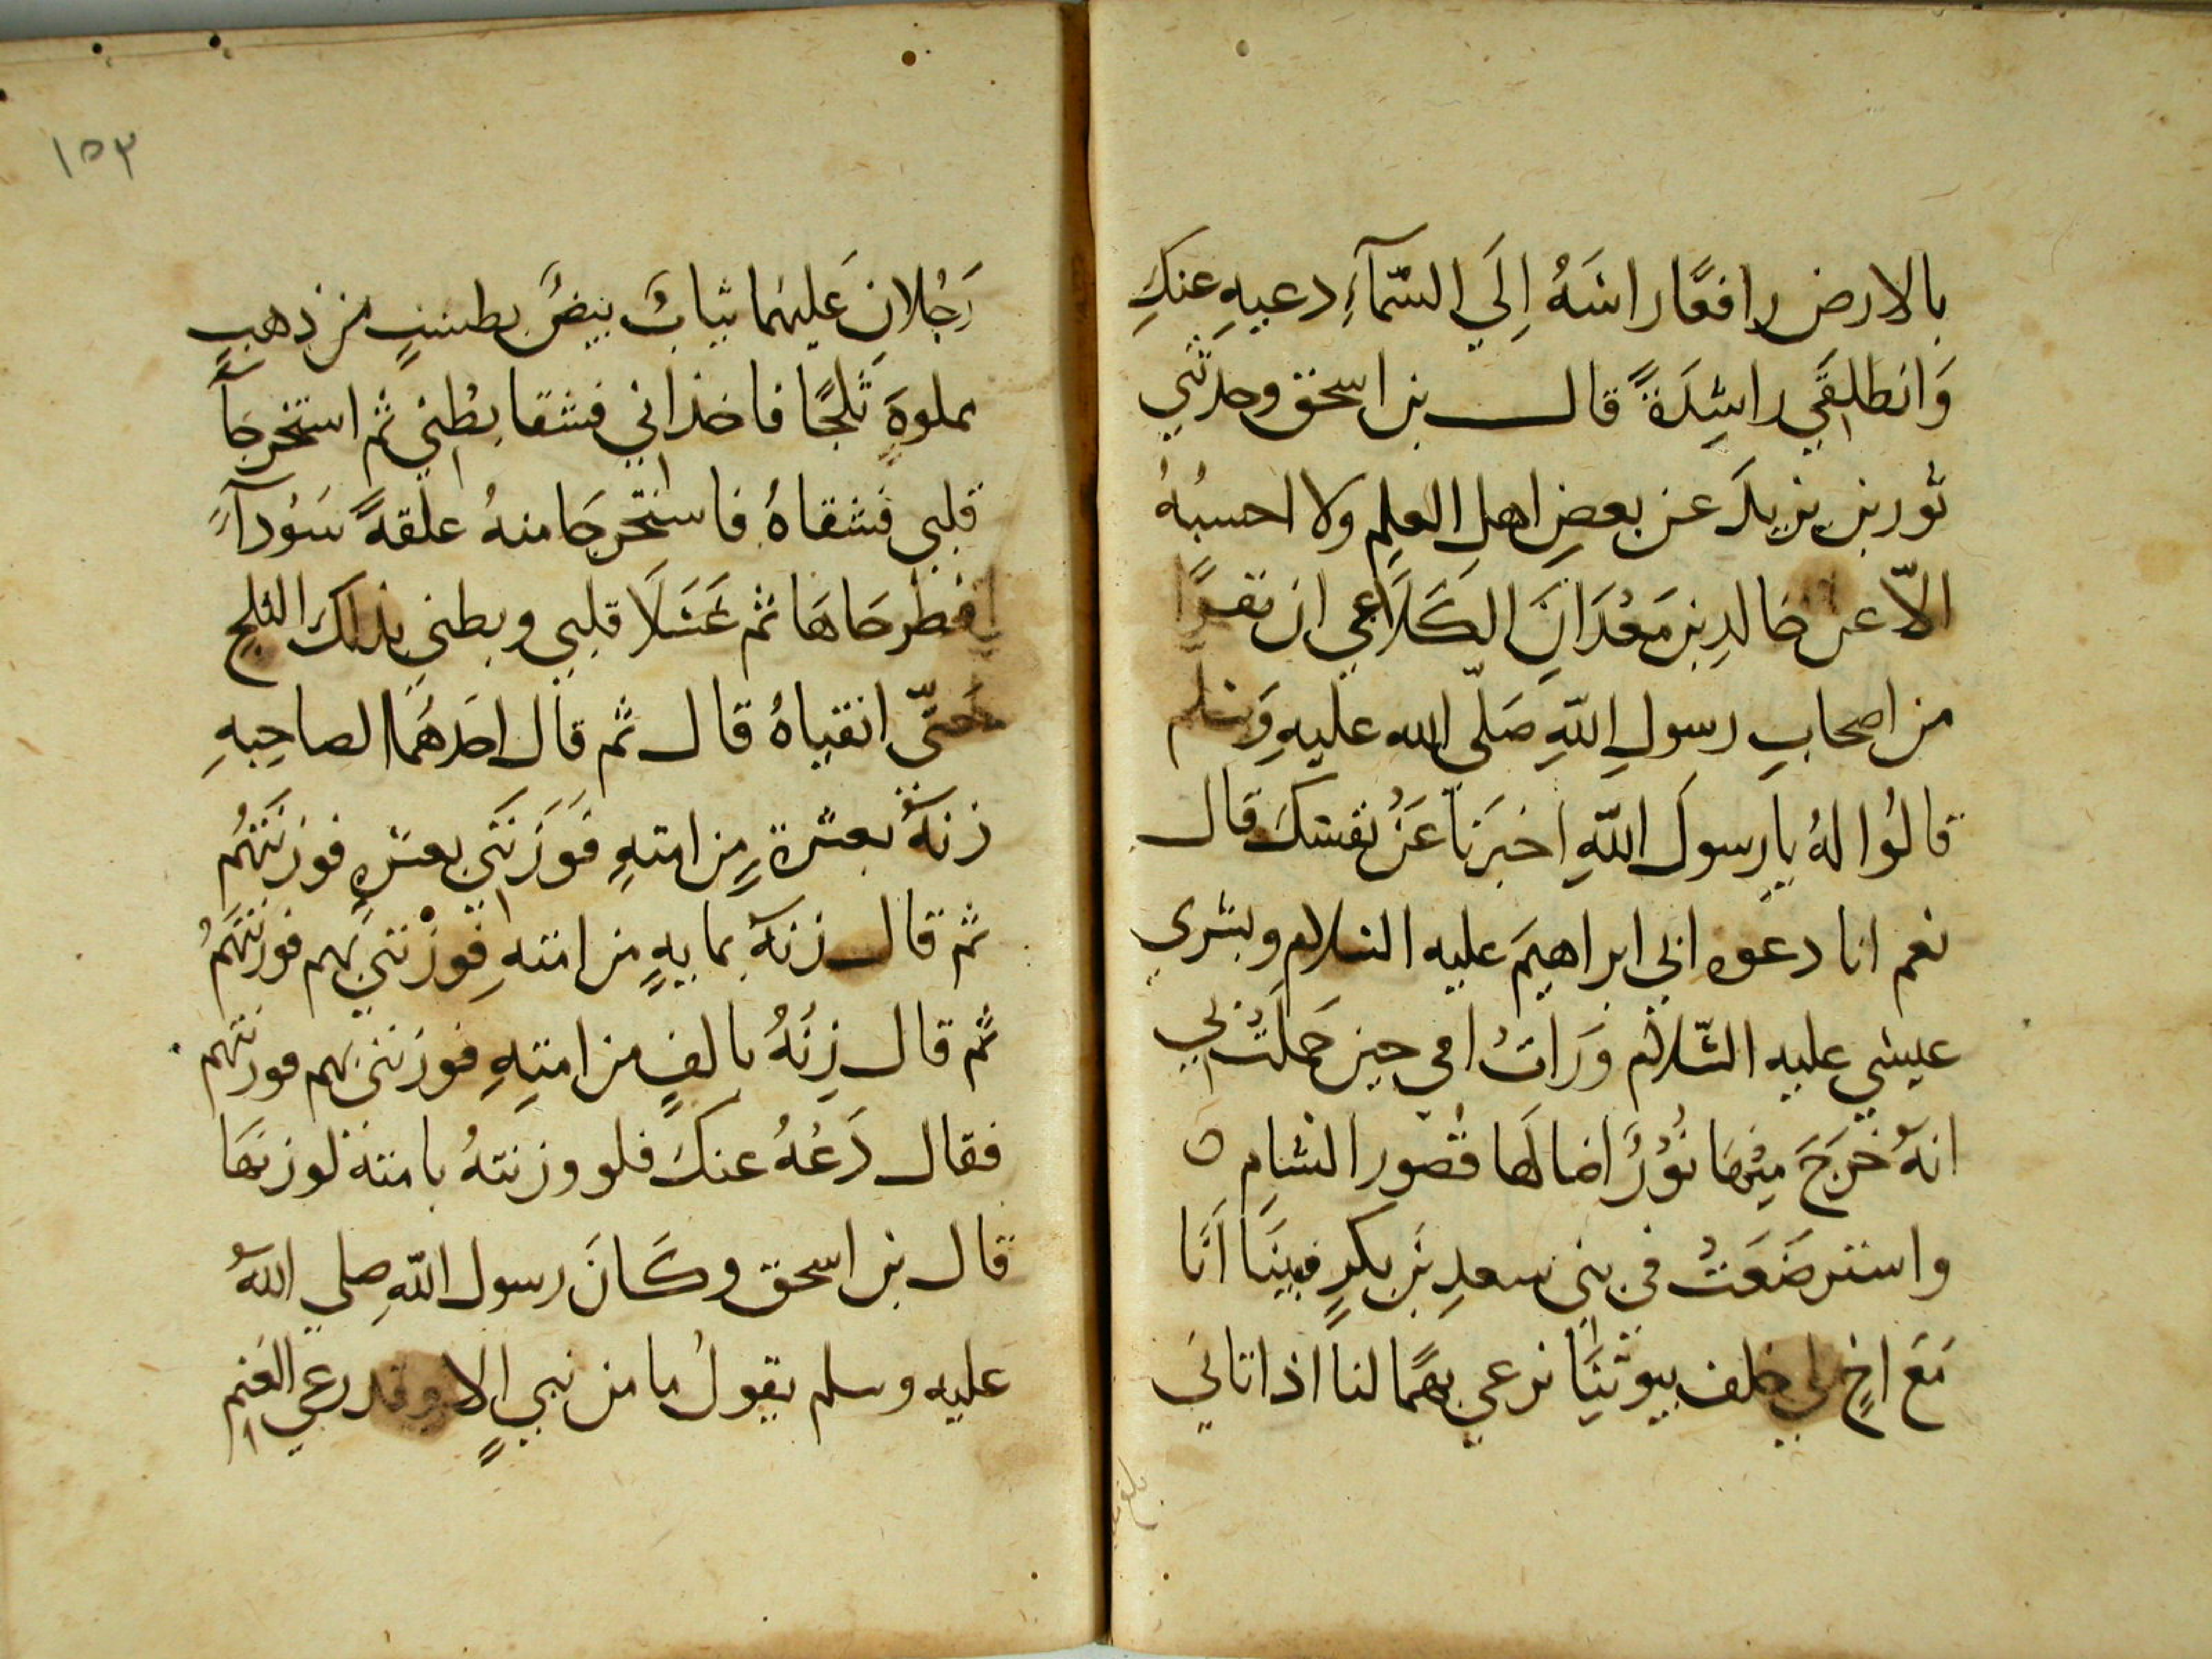 بالارض رافعًا راسَهُ اِلَي السّمآءِ دعيهِ عنكِ
وَانطلِقَي راشِدَةً قال بن اسحق وحدثَني
ثور بن يزيدَ عن بعضِ اهلِ العلِم ولا احسبُهُ
الاّ عن خالدِ بن مَعْدَانَ الكَلَاعي ان نفرًا
من اصحابِ رسولِ اللّهِ صَلّى الله عليهِ وَسلم
قالُوا لهُ يا رسولَ اللّهِ اخبرَنا عَنْ نفسكَ قال
نعم انا دعوه ابي ابراهيمَ عليه السلام وبشري
عيسي عليه السّلام وَرات امي حين حَملَتْ بي
انهُ خَرَجَ مِنْهَا نُوْرٌ اضا لَها قصُور الشامِ ه
واسترضَعَتُ في بني سعدِ بنَ بكرٍ فبينَا اَنَا
مَعَ اخٍ لي خلف بيوتِنَا نرعي بهمًا لنا اذ اتاني
١٥٣
رَجُلانِ عَليهَما ثيابٌ بيضٌ بطستٍ من ذهبٍ
مملوةٍ ثلجًا فاخذاني فشقا بطْني ثم استخرجَا
قلبي فشقاهُ فاستخرجَا منهُ علقهً سَوْدآءَ
فطرحَاهَا ثم غَسَلَا قلبي وبطني بذلكَ الثلج
حتّى انقياهُ قال ثم قال احَدهَما لصاحِبهِ
زنهُ بعشرةٍ مِن امتهِ فَوَزَنَني بعشرهٍ فوزنَتهُم
ثم قال زنه بمايهٍ من امتهِ فوزنني بهم فوزنتهَمُ
ثم قال زِنَهُ بالفٍ من امتِهِ فوزنني بهم فوزنتهم
فقال دَعْهُ عنكَ فلو وزنتهُ بامته لوزنهَا
قال بن اسحق وكَانَ رسول اللّهِ صلي اللهُ
عليه وسلم يقولُ ما من نبيٍ الا وقد رعي الغنم